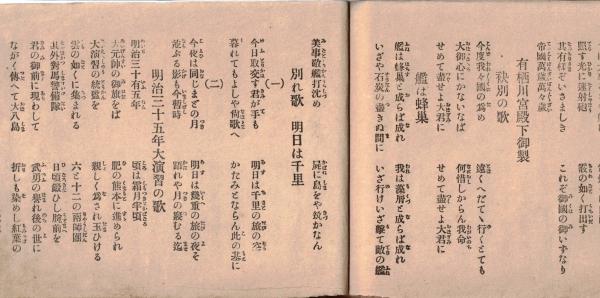 照すめに蓮射砲　霰の如く打出す
其有様ぞいさましき　これぞ御國の御いずなり
帝國萬歳萬々歳
有栖川宮殿下御製
袂別の歌
今度我々國の為め　遠くへだてゝ行くとても
大御心にかないなば　何惜しからん我命
せめて盡せよ大君に　せめて盡せよ大君に
艦は蜂巣
艦は蜂巣と成らば成れ　我は藻屑と成らば成れ
いざや石炭の盡きぬ間に　いざ行けいざ撃て敵の艦
美事敵艦打沈め　屍に島をや築かなん
別れ歌　明日は千里
（一）
今日取交す君が手も　明日は千里の旅の空
暮れてもよしや尙歌へ　かたみとならん此の基に
（二）
今夜は同じまどの月　明日は幾重の旅の夜そ
並ぶる影も今暫時　語れや月の寂むる迄
明治三十五年大演習の歌
明治三十有五年　頃は霜月半頃
大元帥の御旗をば　肥の熊本に進められ
大演習の統監を　親しく為され玉ひける
雲の如くに集まれる　六と十二の兩師團
其外對馬警備隊　日頃鍛ひし腕前を
君の御前に現わして　武勇の譽れ後の世に
ながく傳へて大八島　折も染めし紅葉の